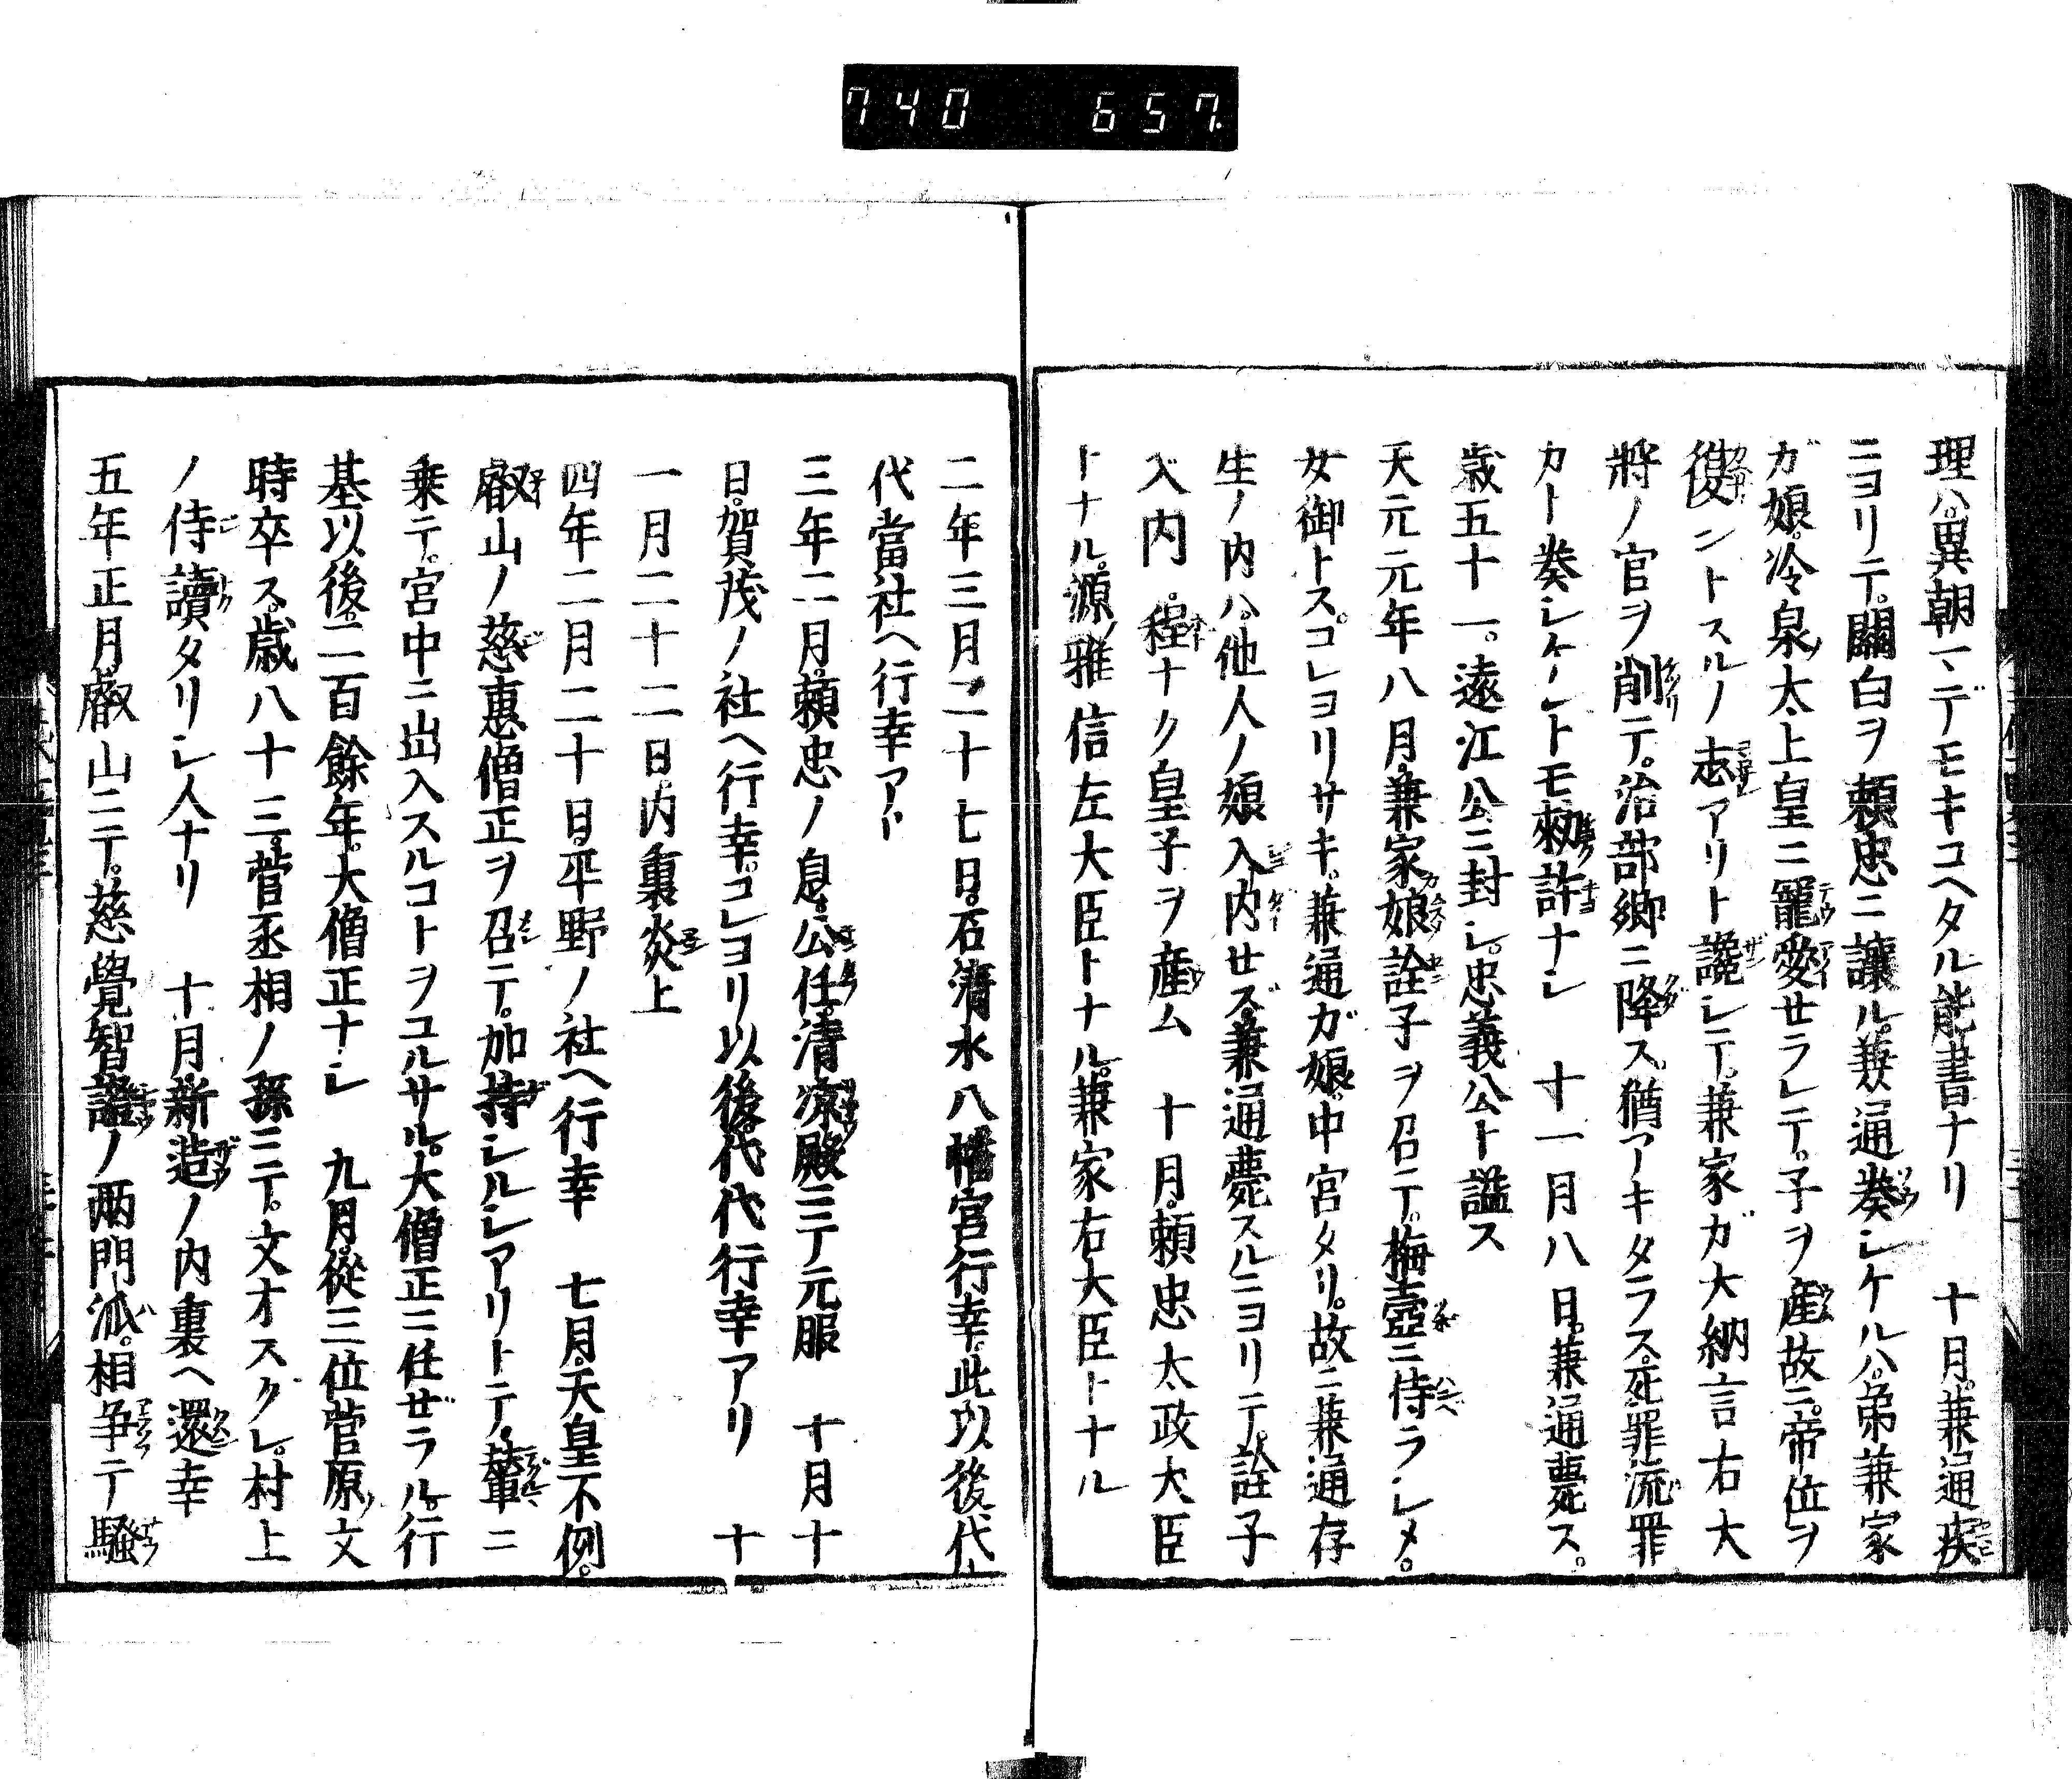 740 657
理ハ。異朝マデモキコヘタル能書ナリ 十月。兼通疾
ニヨリテ。關白ヲ頼忠ニ讓ル。兼通奏シケルハ。弟兼家
ガ娘。冷泉太上皇ニ寵愛セラレテ。子ヲ産故ニ。帝位ヲ
復ントスルノ志アリト讒シテ。兼家ガ大納言右大
將ノ官ヲ削テ。治部卿ニ降ス。猶アキタラス。死罪流罪
カト奏シケレトモ勅許ナシ 十一月八日。兼通薨ス。
歳五十一。遠江公ニ封シ。忠義公ト謚ス
天元元年八月。兼家娘詮子ヲ召テ。梅壺ニ侍ラシメ。
女御トス。コレヨリサキ。兼通ガ娘中宮タリ。故ニ兼通存
生ノ内ハ。他人ノ娘入内セズ。兼通薨スルニヨリテ。詮子
入内。程ナク皇子ヲ産ム 十月。頼忠太政大臣
トナル。源雅信左大臣トナル。兼家右大臣トナル
二年三月二十七日。石清水八幡宮行幸。此以後代
代當社ヘ行幸アリ
三年二月。頼忠ノ息。公任。清凉殿ニテ元服 十月十
日。賀茂ノ社ヘ行幸。コレヨリ以後。代代行幸アリ 十
一月二十二日。内裏炎上
四年二月二十日。平野ノ社ヘ行幸 七月。天皇不例。
叡山ノ慈惠僧正ヲ召テ。加持シルシアリトテ。輦ニ
乗テ。宮中ニ出入スルコトヲユルサル。大僧正ニ任ゼラル。行
基以後。二百餘年。大僧正ナシ 九月。從三位菅原文
時卒ス。歳八十三。菅丞相ノ孫ニテ。文才スクレ。村上
ノ侍讀タリシ人ナリ 十月。新造ノ内裏ヘ還幸
五年正月。叡山ニテ。慈覺智證ノ兩門派。相爭テ騷